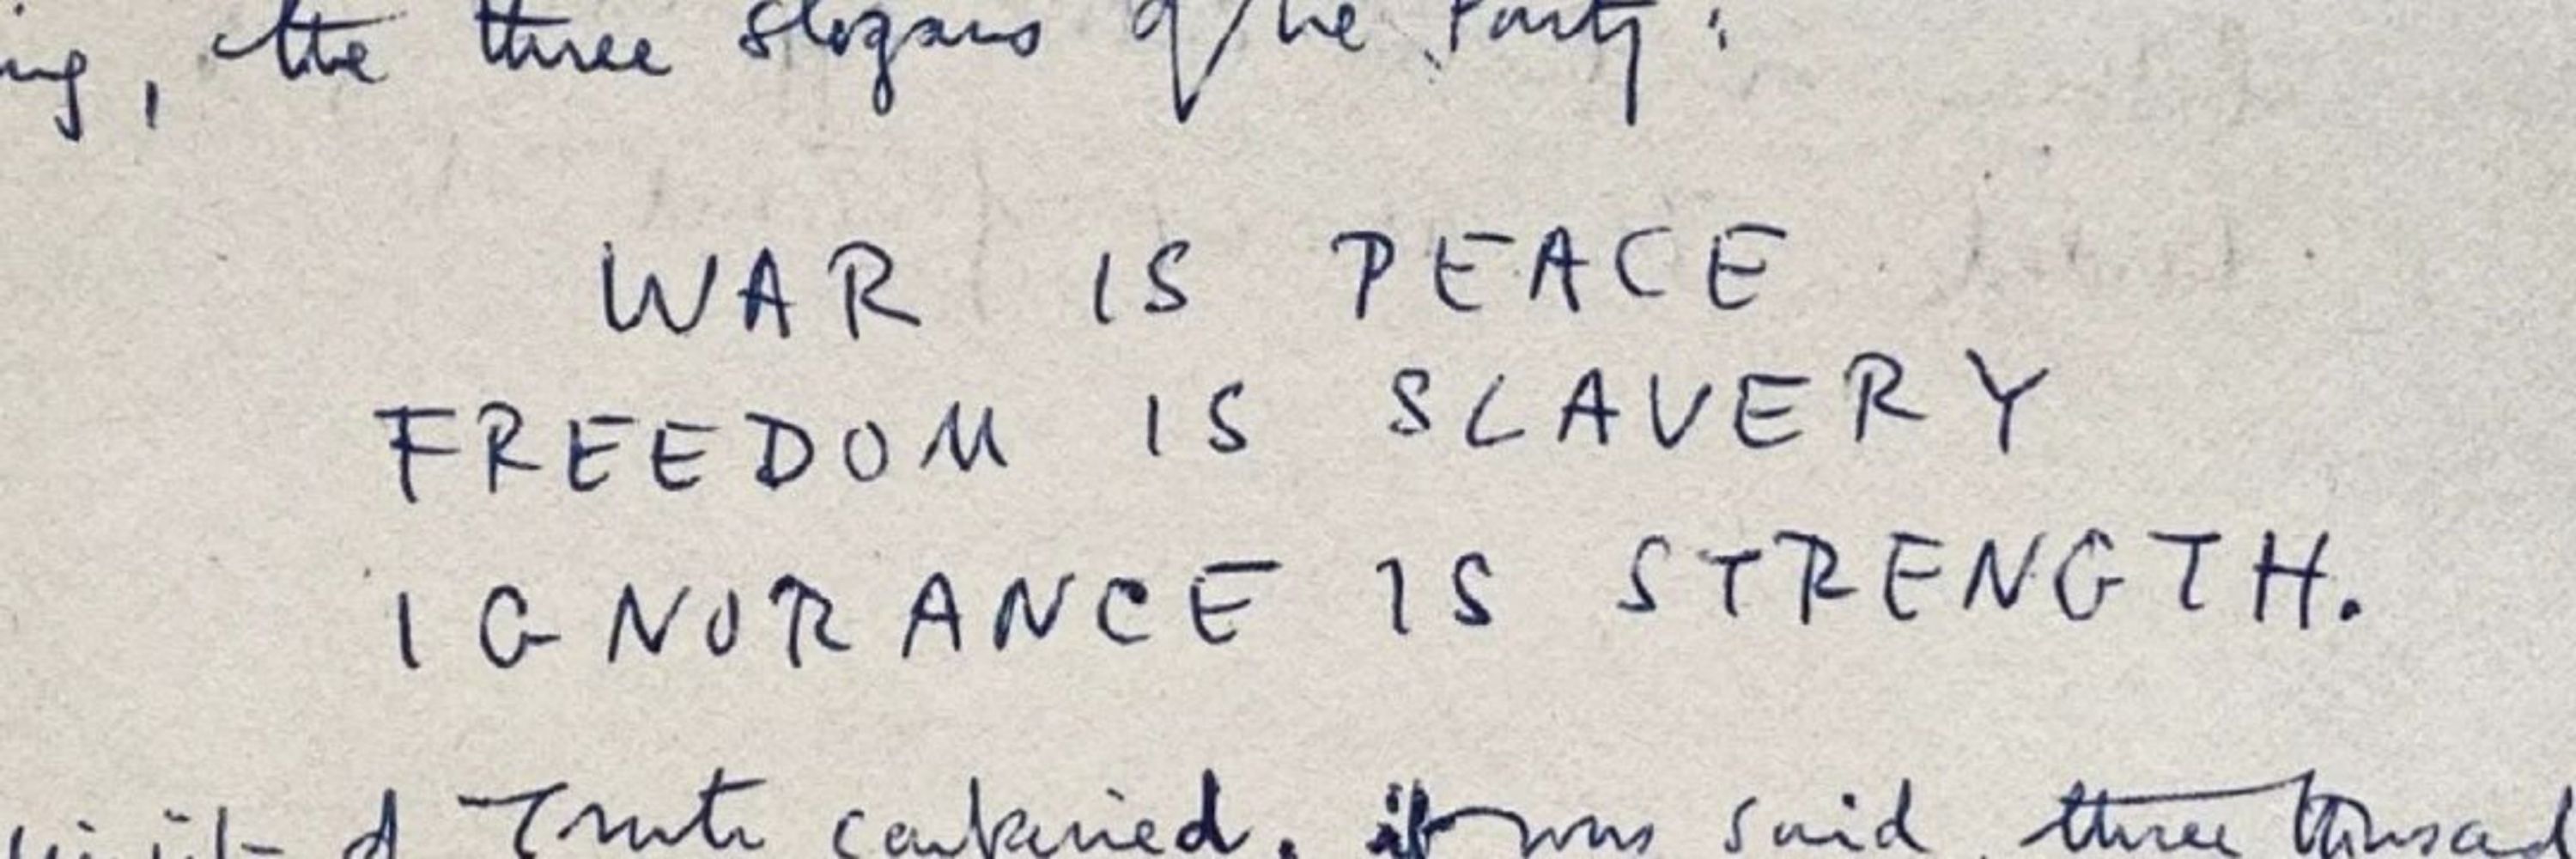 ing, the three slogans of the Party:
WAR IS PEACE
FREEDOM IS SLAVERY
IGNORANCE IS STRENGTH.
of Truth contained, it was said, three thousand